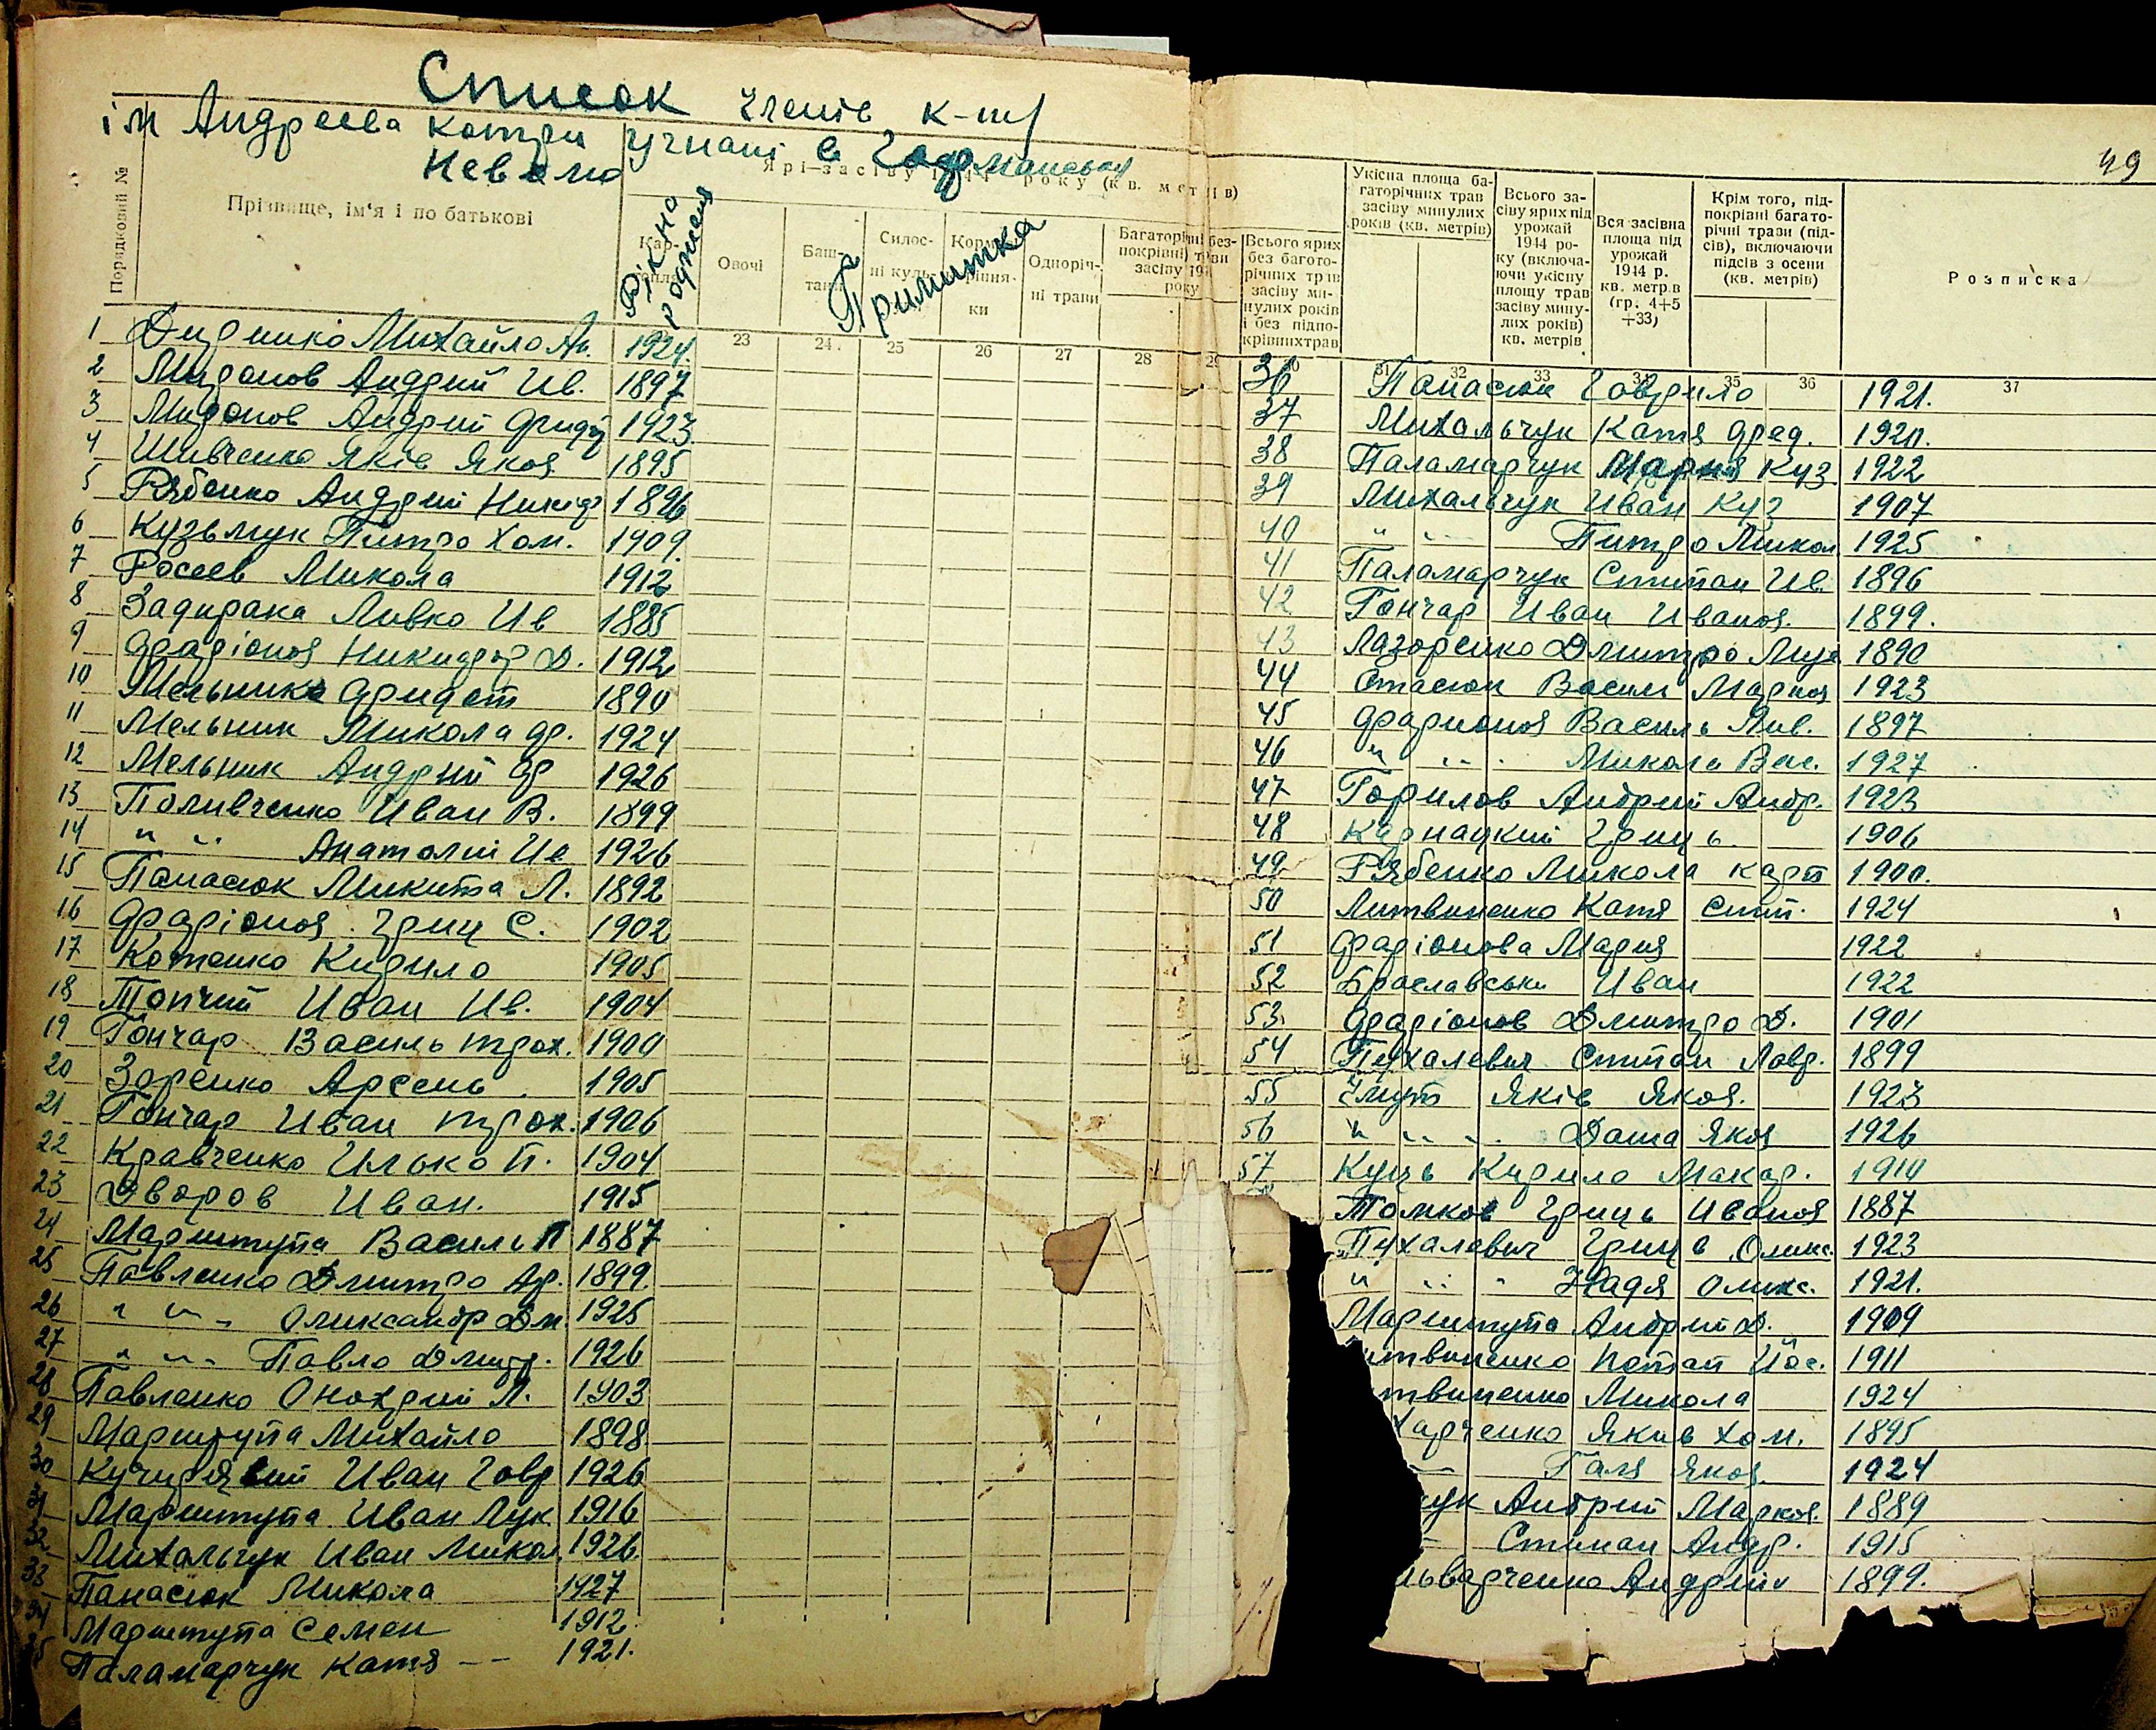 Список членів к-пі
ім Андреєва котри угнані в Германськ
Неволю
49
Порядковий №
Прізвище, ім'я і по батькові
Рік народженя
Примитка
Ярі—засіву 1944 року (кв. метрів)
Картопля
Овочі
Баштани
Силосні культ
Кормкоріння-ки
Одноріч-ні трави
Багаторічні (безпокривні) трави засіву 194 року
Всього ярих без багаторічних трав засіву минулих років і без підпокрівних трав
Укісна площа багаторічних трав засіву минулих років (кв. метрів)
Всього засіву ярих під урожай 1944 року (включаючи укісну площу трав засіву минулих років) кв. метрів
Вся засівна площа під урожай 1944 р. кв. метрів (гр. 4+5+33)
Крім того, підпокрівні багаторічні трави (підсів), включаючи підсів з осени (кв. метрів)
Розписка
23 24 25 26 27 28 29 30 31 32 33 34 35 36 37
1 Диденко Михайло Ав. 1924.
2 Миронов Андрий Ив. 1897
3 Миронов Андрий 1923
4 Шивченко Яків Яков 1895
5 Рябенко Андрий Никиф 1896
6 Кузьмук Питро Хом. 1909.
7 Росеев Микола 1912
8 Задирака Ливко Ив 1885
9 Фаріонов Никифор Д. 1912
10 Мельник 1890
11 Мельник Микола Фр. 1924
12 Мельник Андрий Фр 1926
13 Поливченко Иван В. 1899
14 " " Анатолий Ив 1926
15 Панасюк Микита Л. 1892
16 Фаріонов Гриц С. 1902
17 Котенко Кирило 1905
18 Топчий Иван Ив. 1904
19 Гончар Василь трох. 1900
20 Зоренко Арсень 1905
21 Гончар Иван трох. 1906
22 Кравченко Илько П. 1904
23 Дворов Иван. 1915
24 Маринтупа Василь П 1887
25 Павленко Дмитро Ар. 1899.
26 " " Оликсандр Дм. 1925
27 " " Павло Дмитр. 1926
28 Павленко Онохрий Л. 1903
29 Маринтупа Михайло 1898
30 Кучирявий Иван Гавр 1926
31 Маринтупа Иван Лук 1916
32 Михальчук Иван Микол. 1926.
33 Панасюк Микола 1927
34 Маринтупа Семен 1912
35 Паламарчук Катя -- 1921.
36 Панасюк Гаврило 1921.
37 Михальчук Катя Фред. 1920.
38 Паламарчук Мария Куз 1922
39 Михальчук Иван Куз 1907
40 " " Питро Микол 1925
41 Паламарчук Стипан Ив. 1896
42 Гончар Иван Иванов. 1899.
43 Лазоренко Дмитро 1890
44 Стасюк Васили Марков 1923
45 Фарионов Василь Лив. 1897
46 " " Микола Вас. 1927
47 Горилов Андрий Андр. 1923
48 Карнацкий Гриць 1906
49 Рябенко Микола Карп 1900.
50 Литвиненко Катя Стип. 1924
51 Фаріонова Мария 1922
52 Браславськи Иван 1922
53. Фаріонов Дмитро Д. 1901
54 Пухалевич Стипан Лавр. 1899
55 Яків Яков. 1923
56 " " Даша Яков 1926
57 Куць Кирило Макар. 1910
Томков Гриць Иванов 1887
Пухалевич Гриць Олик. 1923
" " Надя Олик. 1921.
Маринтупа Андрий Д. 1909
итвиненко Потап Йос. 1911
твиненко Микола 1924
харченко Якив Хом. 1895
Галя Яков. 1924
ук Андрий Марков. 1889
Стипан Андр. 1915
льварченко Андрий 1899.